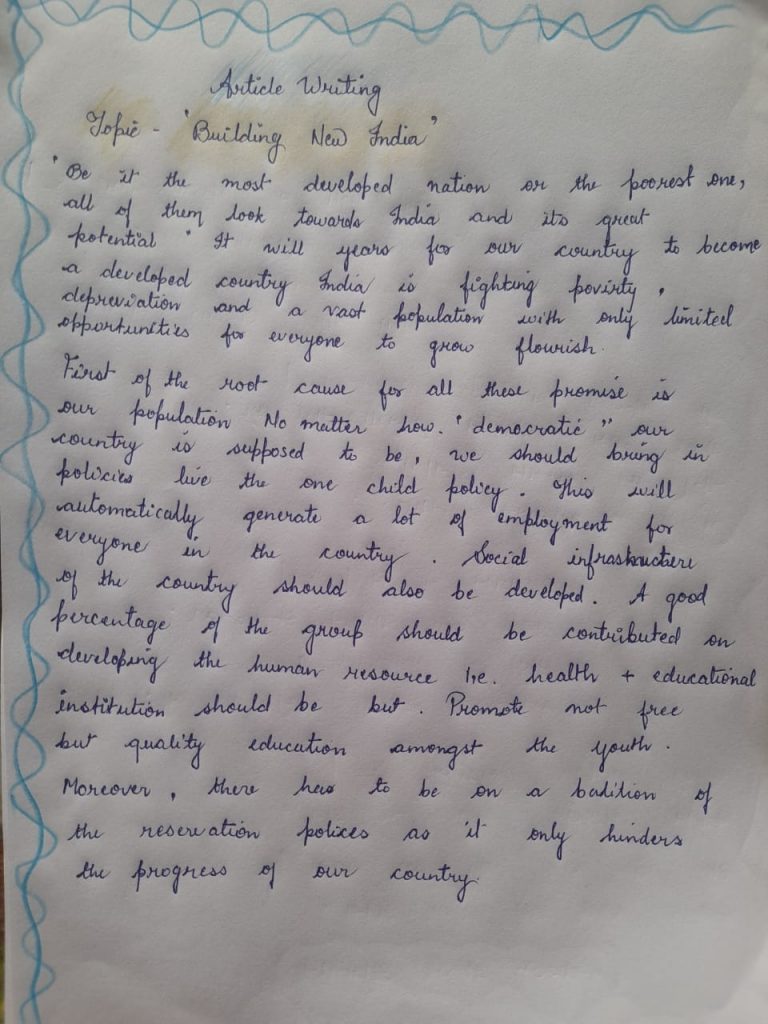 Article Writing
Topic - "Building New India"
"Be it the most developed nation or the poorest one,
all of them look towards India and its great
potential " It will years for our country to become
a developed country India is fighting povirty,
depreviation and a vast population with only limited
opportunities for everyone to grow flourish.
First of the root cause for all these promise is
our population No matter how. "democratic" our
country is supposed to be, we should bring in
policies live the one child policy. This will
automatically generate a lot of employment for
everyone in the country. Social infrastructure
of the country should also be developed. A good
percentage of the group should be contributed on
developing the human resource i.e. health + educational
institution should be but. Promote not free
but quality education amongst the youth.
Moreover, there has to be on a badition of
the reservation polices as it only hinders
the progress of our country.